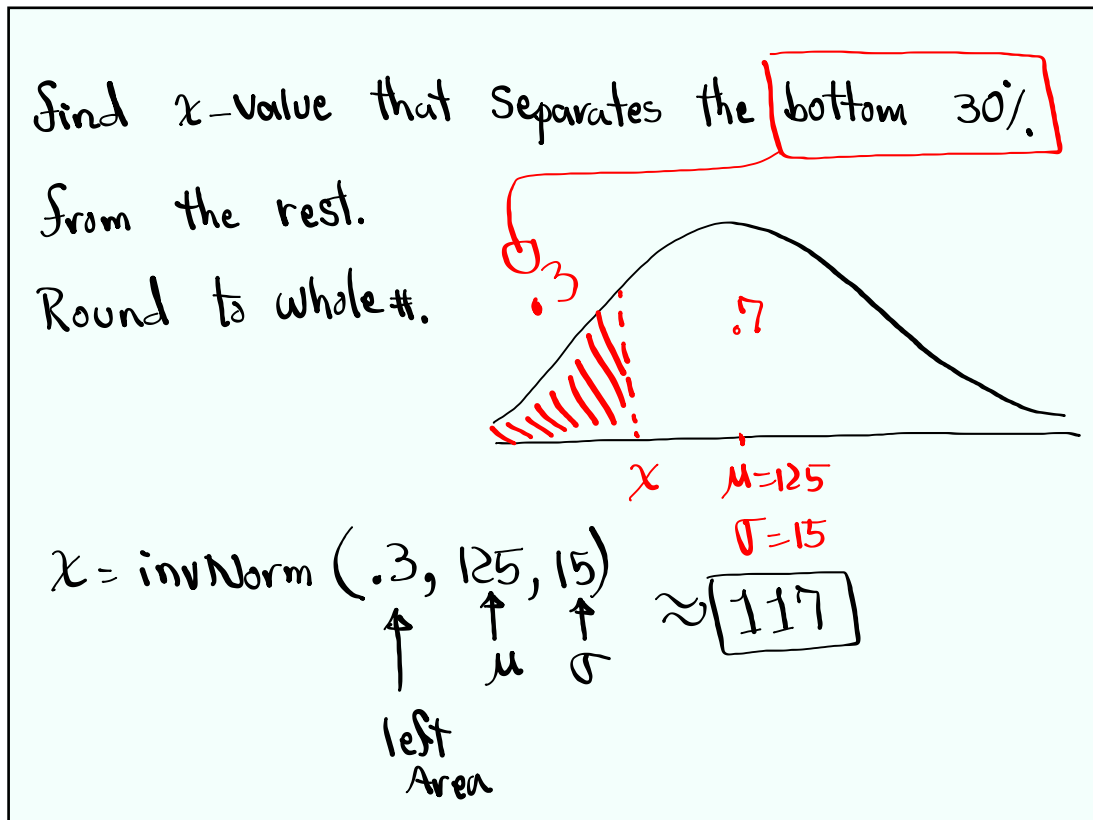 find x-value that separates the bottom 30%.
from the rest.
Round to whole #.
.3
.7
x μ=125
σ=15
x = invNorm (.3, 125, 15) ≈ 117
μ σ
left
Area